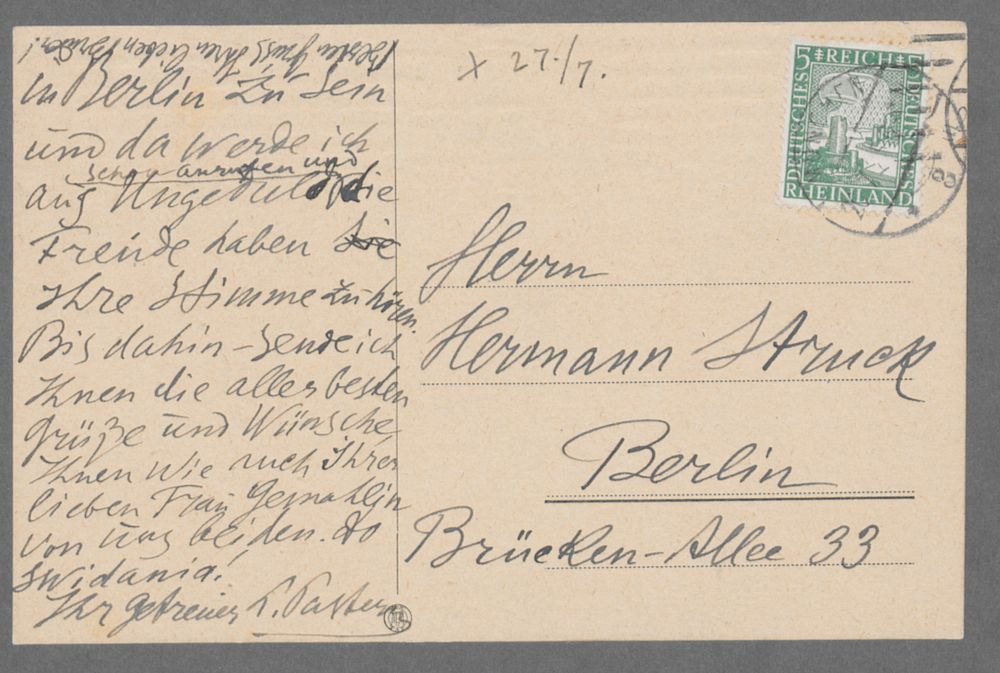 besten Gruss Ihren lieben Bruder!
in Berlin zu sein
und da werde ich
schon anrufen und
auf Ungeduld die
Freude haben Sie
Ihre Stimme zu hören.
Bis dahin – sende ich
Ihnen die aller besten
Grüße und Wünsche
Ihnen wie auch Ihrer
lieben Frau Gemahlin
von uns beiden. Do
swidania!
Ihr getreuer L. Paster
x 27./7.
5 REICH 5
DEUTSCHES
DEUTSCHES
RHEINLAND
Herrn
Hermann Struck
Berlin
Brücken-Allee 33